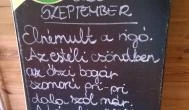 SZEPTEMBER
Elnémult a rigó.
Az estéli csöndben
az őszi bogár
szomorú pri-pri
dala szól már.